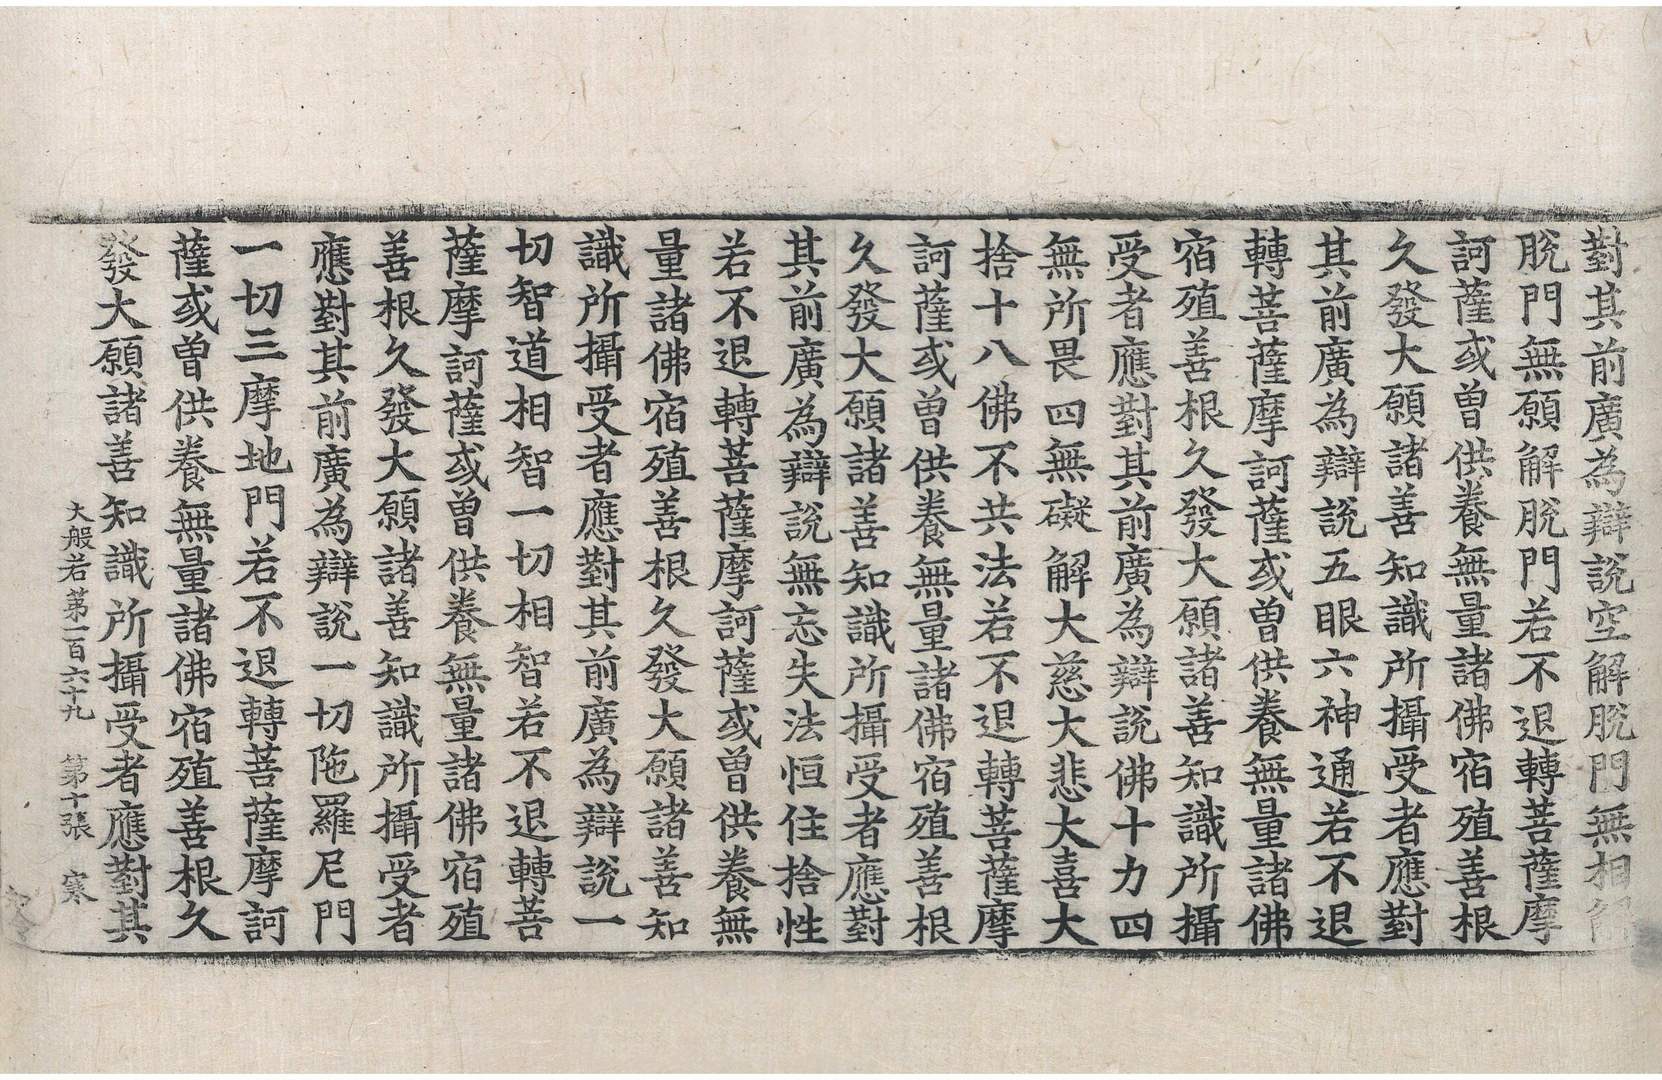 對其前廣為辯說空解脫門無相解
脫門無願解脫門若不退轉菩薩摩
訶薩或曾供養無量諸佛宿殖善根
久發大願諸善知識所攝受者應對
其前廣為辯說五眼六神通若不退
轉菩薩摩訶薩或曾供養無量諸佛
宿殖善根久發大願諸善知識所攝
受者應對其前廣為辯說佛十力四
無所畏四無礙解大慈大悲大喜大
捨十八佛不共法若不退轉菩薩摩
訶薩或曾供養無量諸佛宿殖善根
久發大願諸善知識所攝受者應對
其前廣為辯說無忘失法恒住捨性
若不退轉菩薩摩訶薩或曾供養無
量諸佛宿殖善根久發大願諸善知
識所攝受者應對其前廣為辯說一
切智道相智一切相智若不退轉菩
薩摩訶薩或曾供養無量諸佛宿殖
善根久發大願諸善知識所攝受者
應對其前廣為辯說一切陁羅尼門
一切三摩地門若不退轉菩薩摩訶
薩或曾供養無量諸佛宿殖善根久
發大願諸善知識所攝受者應對其
大般若第一百六十九　第十張　寒